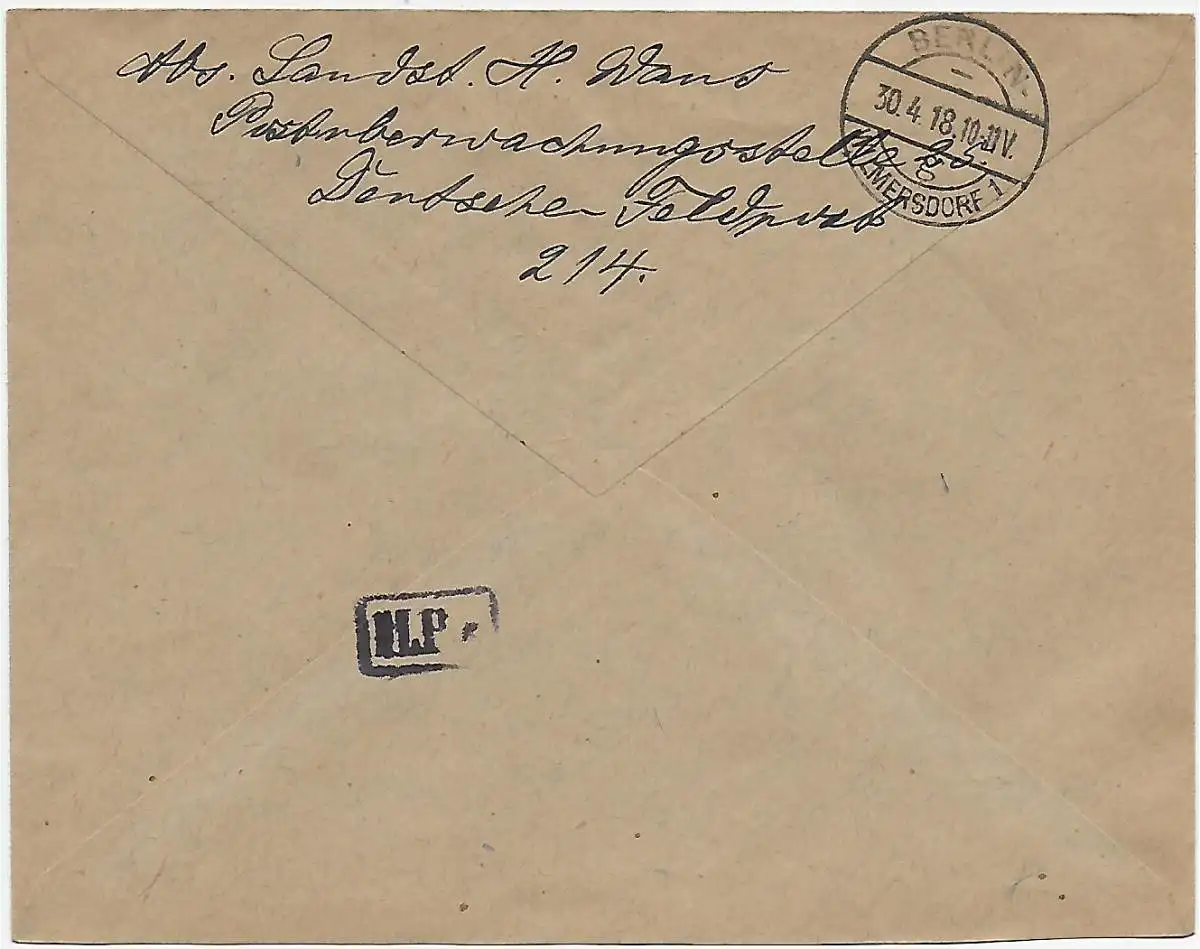 Abs. Landst. H. Wans
Postüberwachungsstelle
Deutsche Feldpost
214.
BERLIN-
30.4.18.10-11V.
WILMERSDORF 1